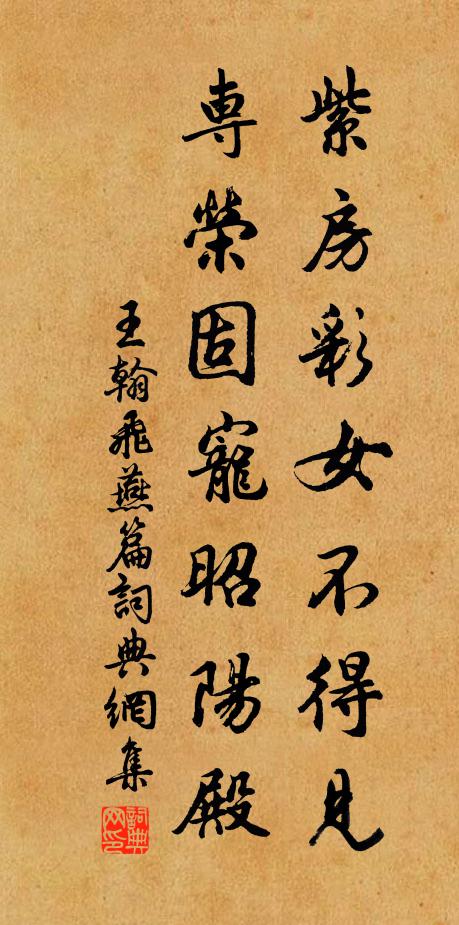 紫房彩女不得見
專榮固寵昭陽殿
王翰飛燕篇詞典網集
詞典网印